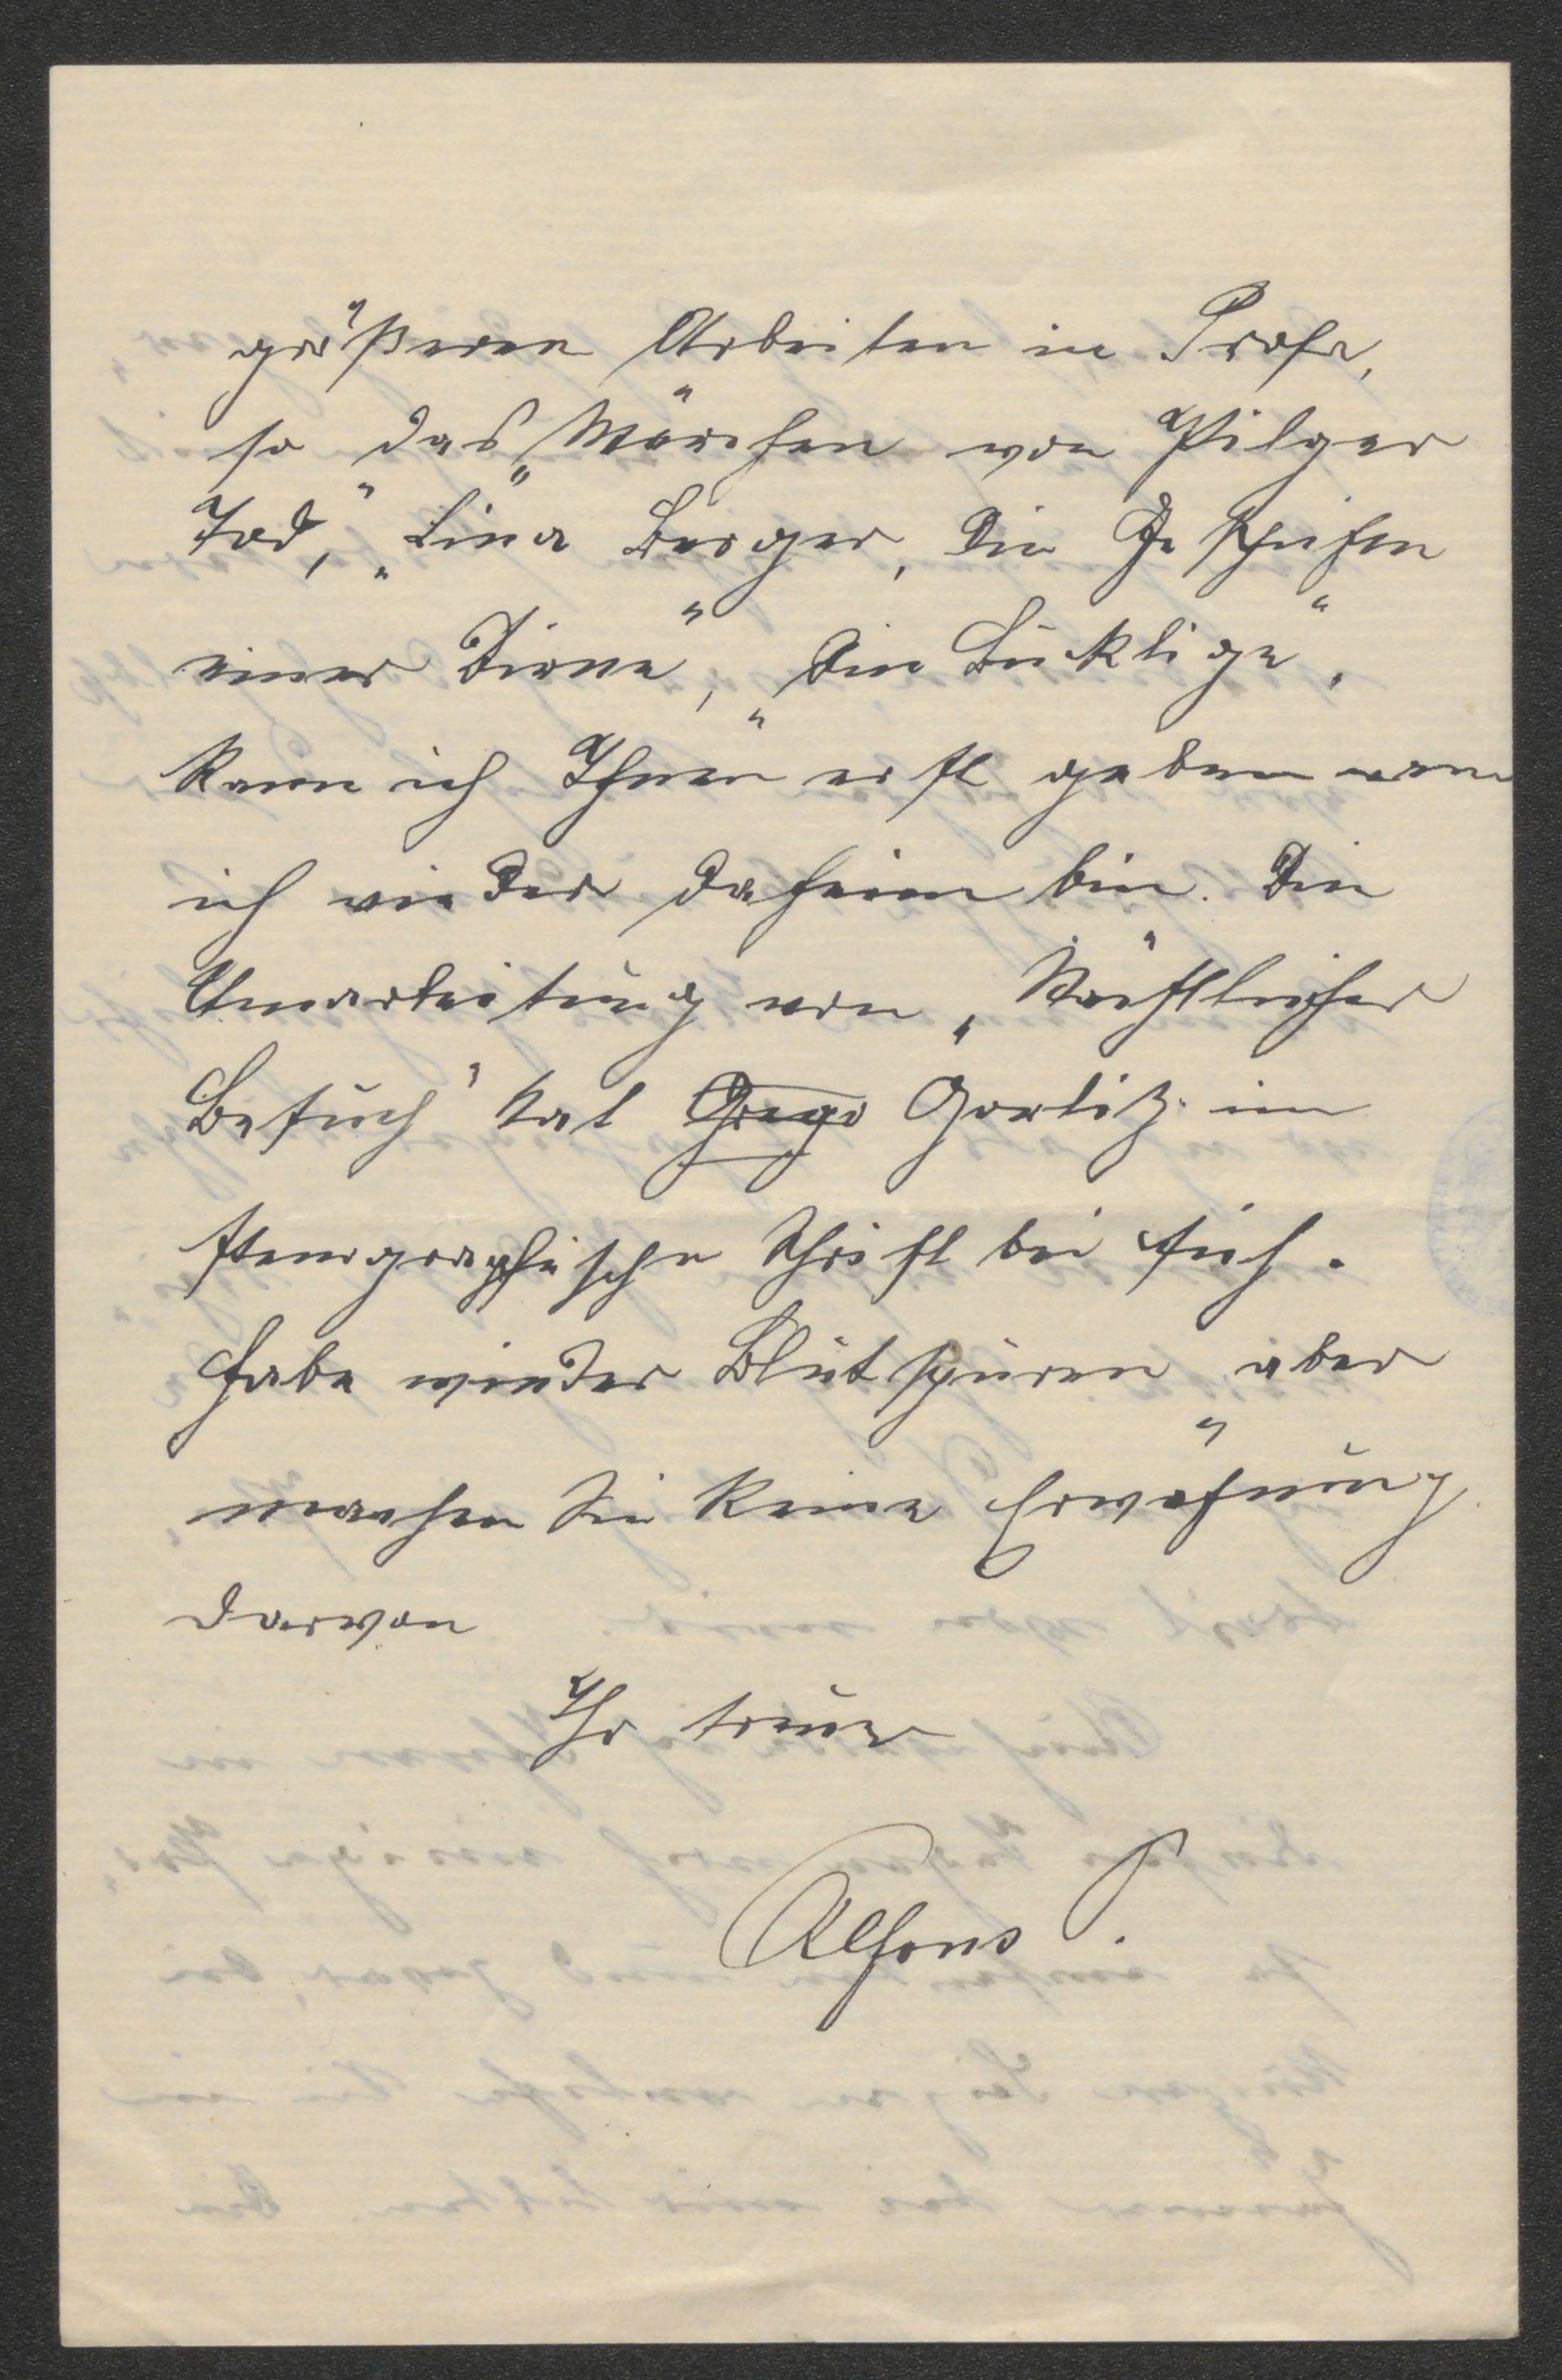 größeren Arbeiten in Prosa,
so das „Märchen von Pilger
Tod,“ „Lina Berger, die Geschichten
einer Dirne“, „die Bucklige“,
kann ich Ihnen erst geben wenn
ich wieder daheim bin. Die
Umarbeitung von „Nächtlicher
Besuch“ hat Gorlitz im
stenographische Schrift bei sich.
Habe wieder Blutspuren, aber
machen Sie keine Erwähnung
darvon
Ihr treuer
Alfons P.